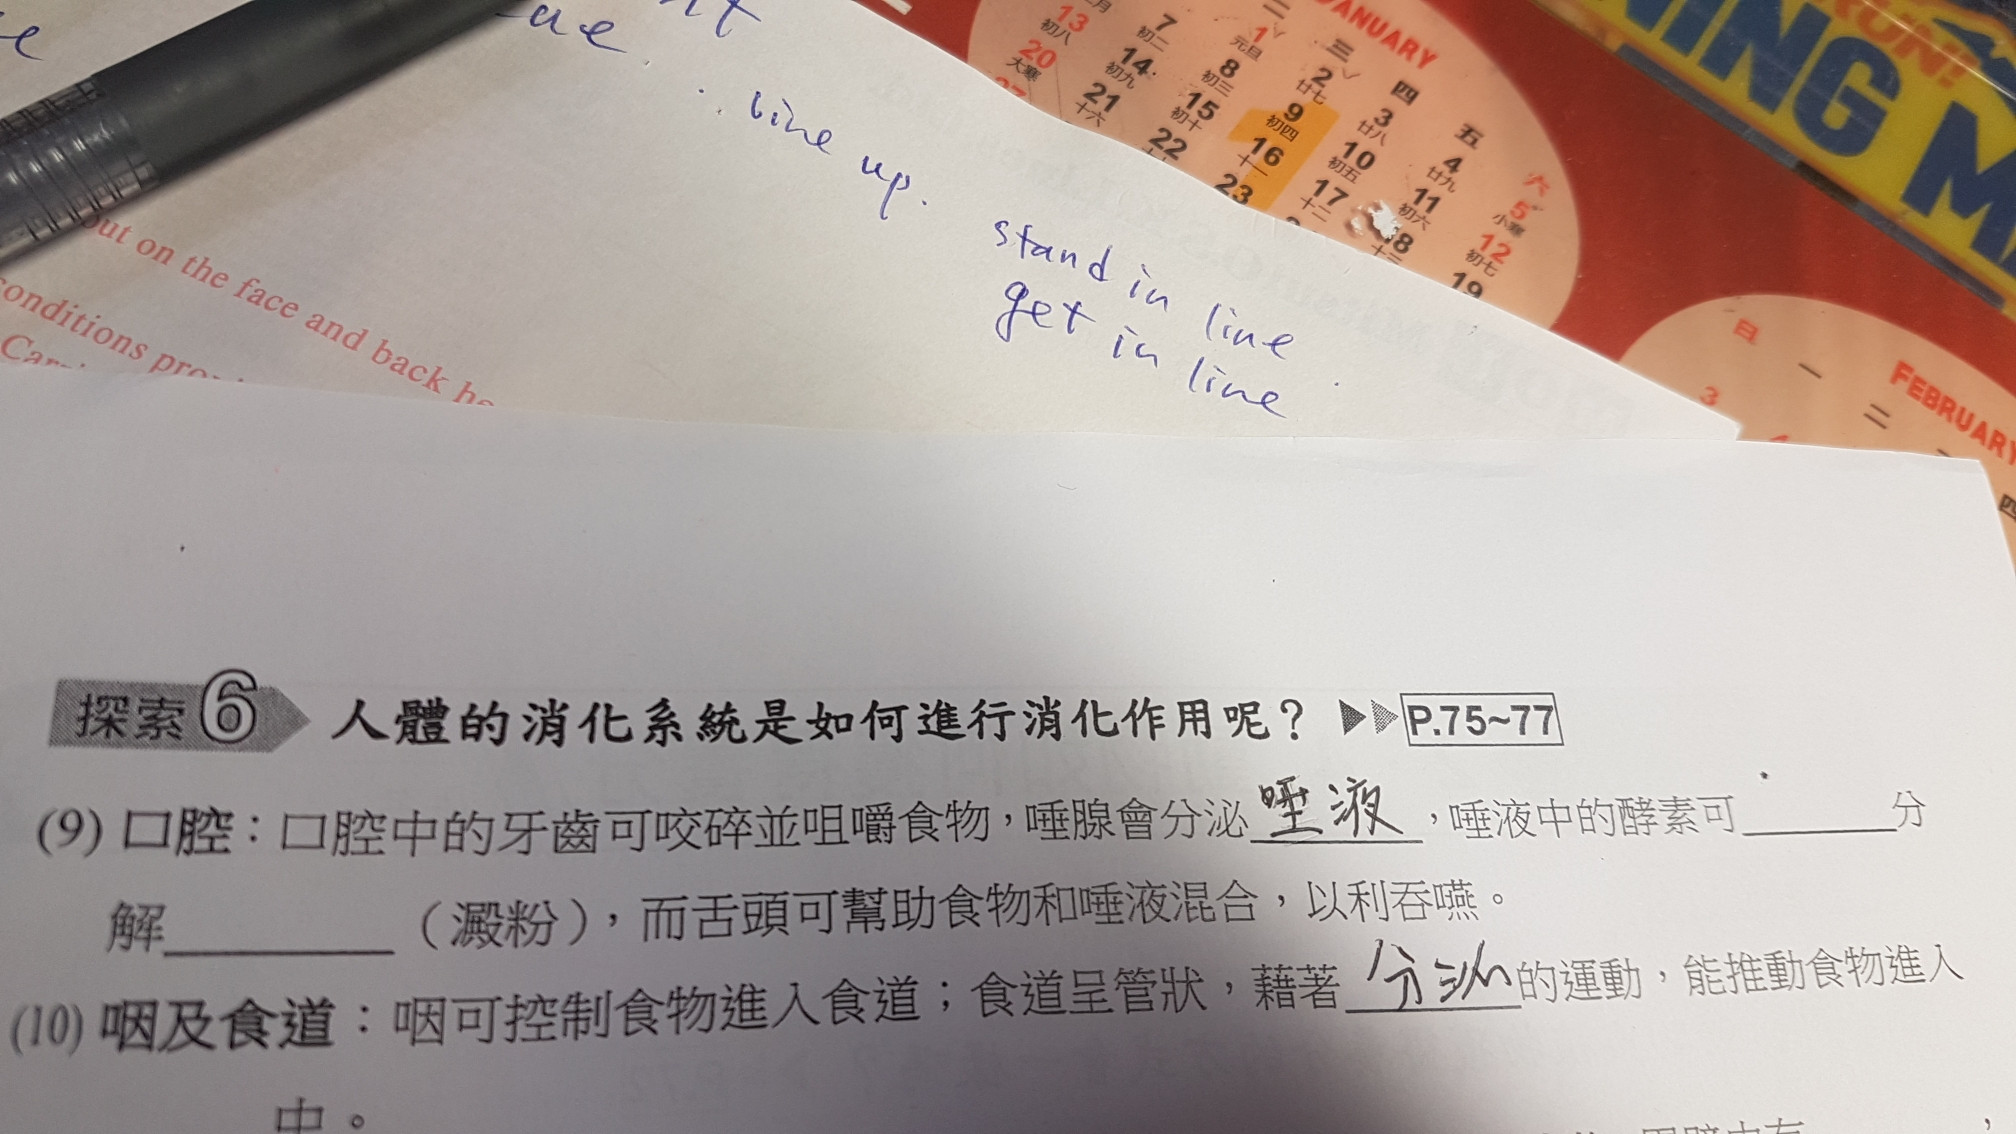 ue
line up.
stand in line
get in line
out on the face and back
conditions
JANUARY
二 三 四 五 六
1 2 3 4 5
元旦 廿七 廿八 廿九 小寒
13 7 8 9 10 11 12
初八 初二 初三 初四 初五 初六 初七
20 14 15 16 17 18 19
大寒 初九 初十 十一 十二 十三
21 22 23
十六
FEBRUARY
日 一 二 四
3
RUN!
NING M
探索6 人體的消化系統是如何進行消化作用呢? P.75~77
(9) 口腔:口腔中的牙齒可咬碎並咀嚼食物,唾腺會分泌唾液,唾液中的酵素可______分
解________(澱粉),而舌頭可幫助食物和唾液混合,以利吞嚥。
(10) 咽及食道:咽可控制食物進入食道;食道呈管狀,藉著分泌的運動,能推動食物進入
中。